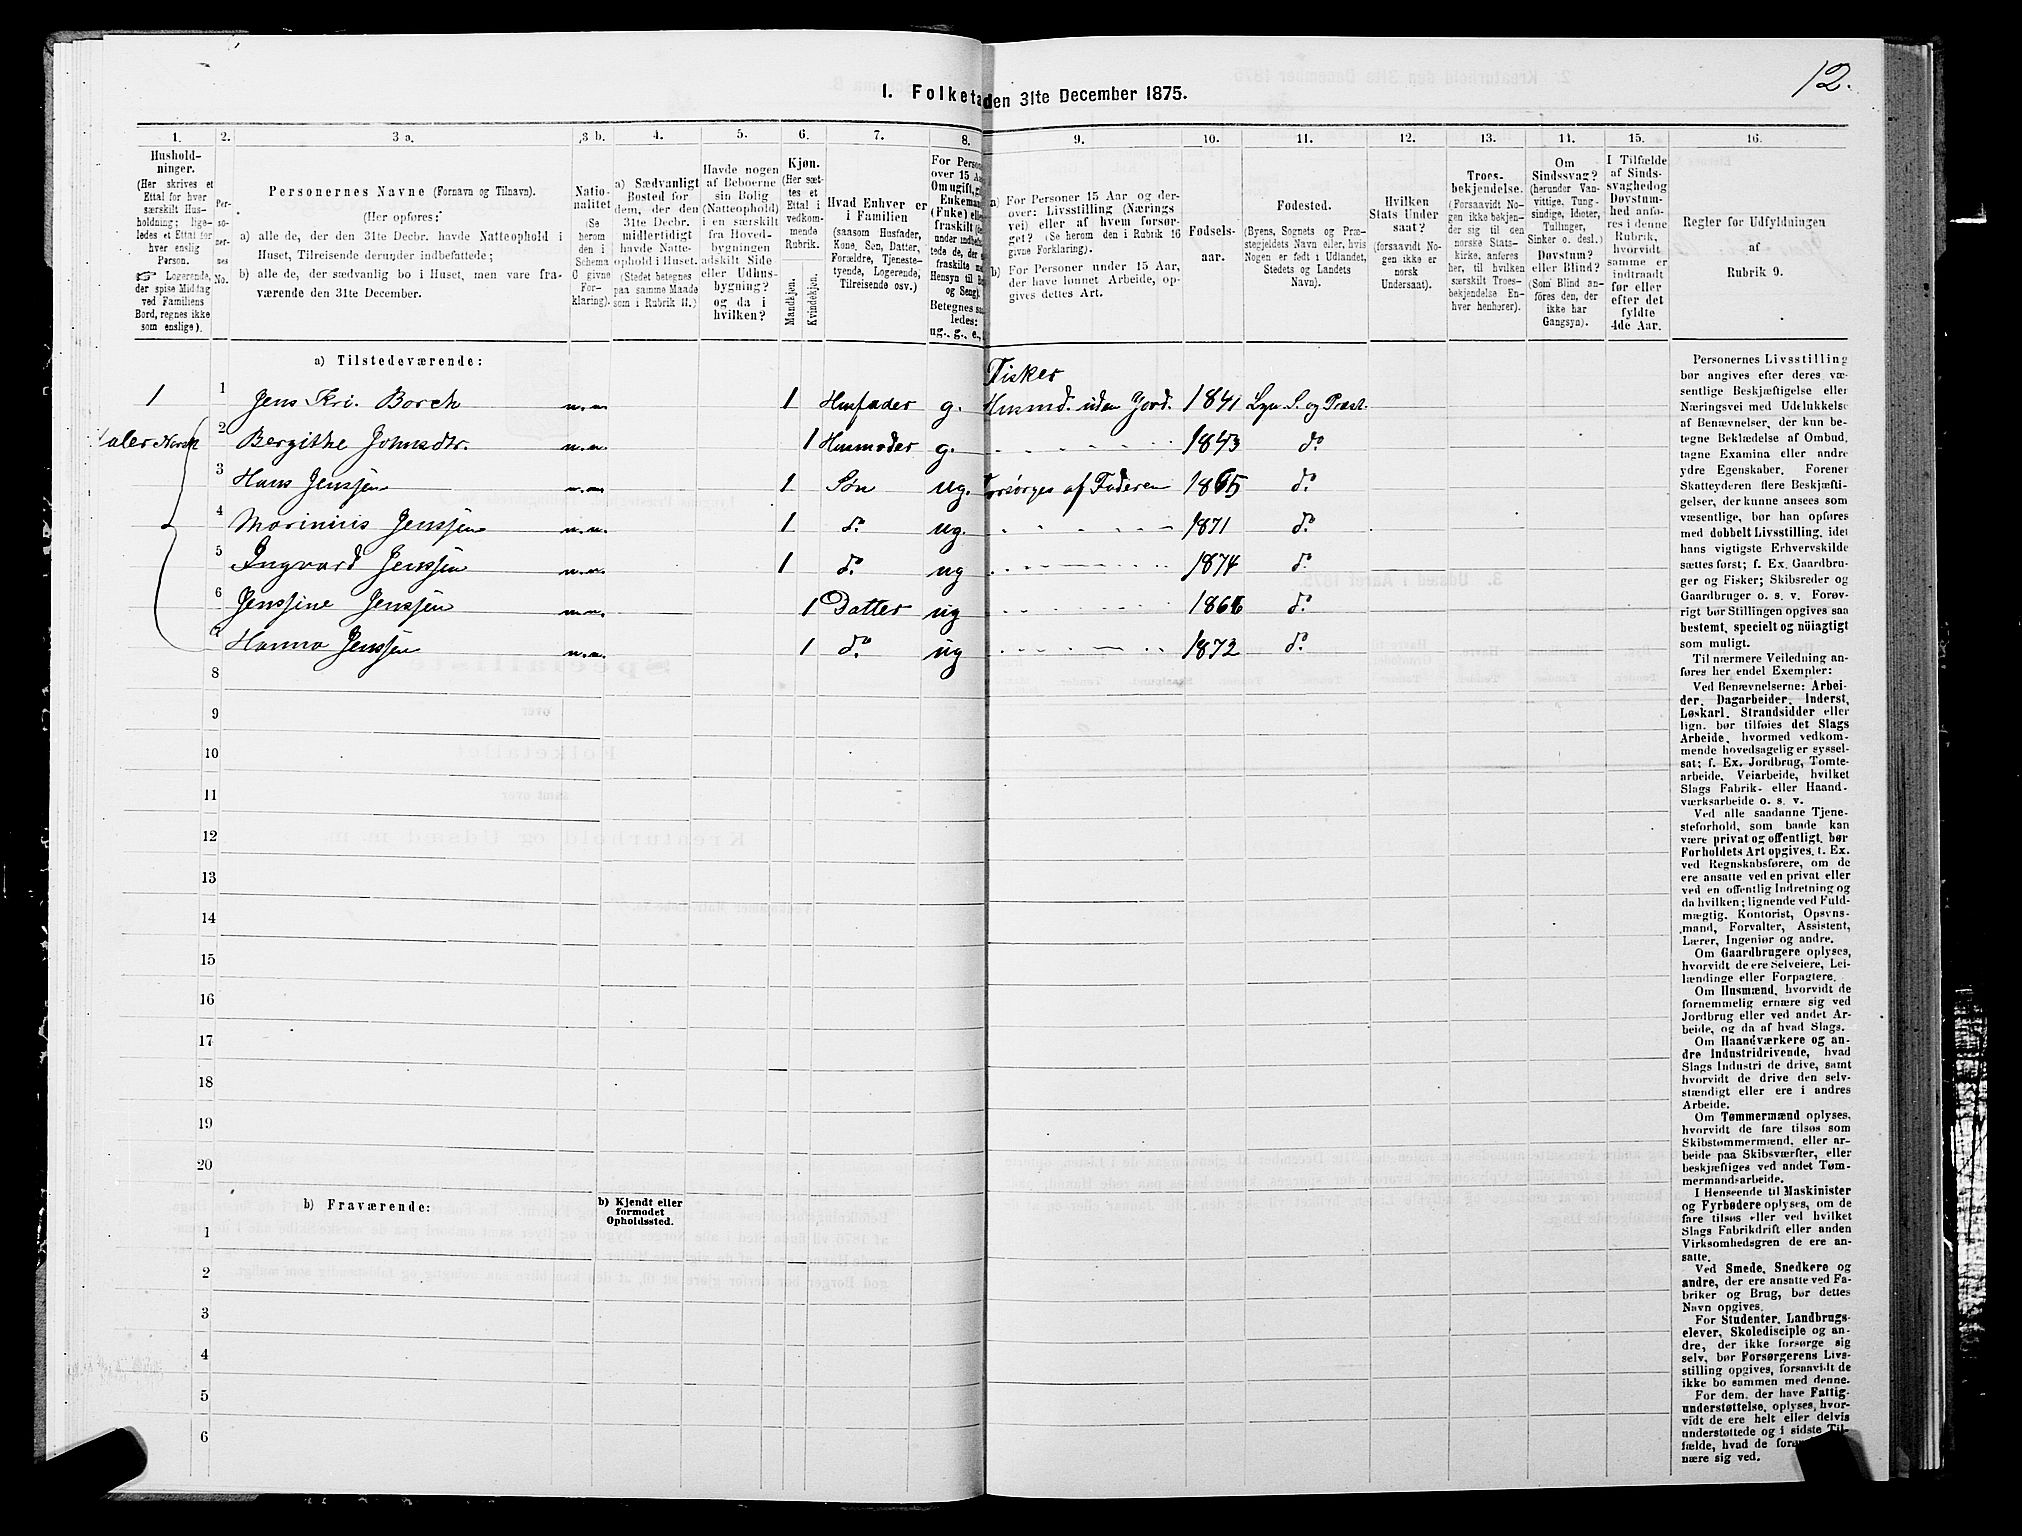 12.
I. Folketa den 31te December 1875.
1. 2. 3 a. 3 b. 4. 5. 6. 7. 8. 9. 10. 11. 12. 13. 14. 15. 16.
Hushold-
ninger.
(Her skrives et
Ettal for hver
særskilt Hus-
holdning; lige-
ledes et Ettal for
hver enslig
Person.
☞ Logerende,
der spise Middag
ved Familiens
Bord, regnes ikke
som enslige).
Per-
so-
ner-
nes
No.
Personernes Navne (Fornavn og Tilnavn).
(Her opføres:
a) alle de, der den 31te Decbr. havde Natteophold i
Huset, Tilreisende derunder indbefattede;
b) alle de, der sædvanlig bo i Huset, men vare fra-
værende den 31te December.
Natio-
nalitet
(Se
herom
den i
Schema
C givne
For-
klaring).
a) Sædvanligt
Bosted for
dem, der den
31te Decbr.
midlertidigt
havde Natte-
ophold i Huset.
(Stedet betegnes
paa samme Maade
som i Rubrik 11.)
Havde nogen
af Beboerne
sin Bolig
(Natteophold)
i en særskilt
fra Hoved-
bygningen
adskilt Side
eller Udhus-
bygning?
og da i
hvilken?
Kjøn.
(Her sæt-
tes et
Ettal i
vedkom-
mende
Rubrik.
Mandkjøn.
Kvindekjøn.
Hvad Enhver er
i Familien
(saasom Husfader,
Kone, Søn, Datter,
Forældre, Tjeneste-
tyende, Logerende,
Tilreisende osv.)
For Perso
over 15 Aa
Om ugift, gi
Enkeman
(Fuke) elle
fraskilt (se
under indbefa
tede de, de e
fraskilte m
Hensyn til Bo
og Seng).
Betegnes sa
ledes:
ug., g., e.,
a) For Personer 15 Aar og der-
over: Livsstilling (Nærings
vei) eller af hvem forsør-
get? (Se herom den i Rubrik 16
givne Forklaring).
b) For Personer under 15 Aar,
der have lønnet Arbeide, op-
gives dettes Art.
Fødsels-
aar.
Fødested.
(Byens, Sognets og Præ-
stegjeldets Navn eller, hvis
Nogen er født i Udlandet,
Stedets og Landets
Navn).
Hvilken
Stats Under
saat?
(forsaavidt No-
gen ikke er
norsk
Undersaat).
Troes-
bekjendelse.
(Forsaavidt No-
gen ikke bekjen-
der sig til den
norske Stats-
kirke, anføres
her, til hvilken
særskilt Troes-
bekjendelse En-
hver henhører).
Om
Sindssvag?
(herunder Van-
vittige, Tung-
sindige, Idioter,
Tullinger,
Sinker o. desl.)
Døvstum?
eller Blind?
(Som Blind an-
føres den, der
ikke har
Gangsyn).
I Tilfælde
af Sinds-
svaghed og
Døvstum-
hed anfø-
res i denne
Rubrik,
hvorvidt
samme er
indtraadt
før eller
efter det
fyldte
4de Aar.
Regler for Udfyldningen
af
Rubrik 9.
a) Tilstedeværende:
Fisker
1 1 Jens Kri. Borch n.n. 1 Husfader g. Husmd. uden Jord. 1841 Lyn S. og Præst.
2 Bergithe Johnsdtr. n.n. 1 Husmoder g. 1843 do
3 Hans Jenssen n.n. 1 Søn ug. Forsørges af Faderen 1865 do
4 Marinius Jenssen n.n. 1 do ug. 1871 do
5 Ingvard Jenssen n.n. 1 do ug 1874 do
6 Jenssine Jenssen n.n. 1 Datter ug do
7 Hanna Jenssen n.n. 1 do ug 1872 do
8
9
10
11
12
13
14
15
16
17
18
19
20
b) Fraværende:
b) Kjendt eller
formodet
Opholdssted.
1
2
3
4
5
6
Personernes Livsstilling
bør angives efter deres væ-
sentlige Beskjæftigelse eller
Næringsvei med Udelukkelse
af Benævnelser, der kun be-
tegne Beklædelse af Ombud,
tagne Examina eller andre
ydre Egenskaber. Forener
Skatteyderen flere Beskjæfti-
gelser, der kunne ansees som
væsentlige, bør han opføres
med dobbelt Livsstilling, idet
hans vigtigste Erhvervskilde
sættes først; f. Ex. Gaardbru-
ger og Fisker; Skibsreder og
Gaardbruger o. s. v. Forøv-
rigt bør Stillingen opgives saa
bestemt, specielt og nöiagtigt
som muligt.
Til nærmere Veiledning an-
føres her endel Exempler:
Ved Benævnelserne: Arbei-
der, Dagarbeider, Inderst,
Løskarl, Strandsidder eller
lign. bør tilføies det Slags
Arbeide, hvormed vedkom-
mende hovedsagelig er syssel-
sat; f. Ex. Jordbrug, Tomte-
arbeide, Veiarbeide, hvilket
Slags Fabrik- eller Haand-
værksarbeide o. s. v.
Ved alle saadanne Tjene-
steforhold, som baade kan
være privat og offentligt, bør
Forholdets Art opgives, t. Ex.
ved Regnskabsførere, om de
ere ansatte ved en privat eller
ved en offentlig Indretning og
da hvilken; lignende ved Fuld-
mægtig, Kontorist, Opsyns-
mand, Forvalter, Assistent,
Lærer, Ingeniør og andre.
Om Gaardbrugere oplyses,
hvorvidt de ere Selveiere, Lei-
lændinge eller Forpagtere.
Om Husmænd, hvorvidt de
fornemmelig ernære sig ved
Jordbrug eller ved andet Ar-
beide, og da af hvad Slags.
Om Haandværkere og an-
dre Industridrivende, hvad
Slags Industri de drive, samt
hvorvidt de drive den selv-
stændigt eller ere i andres
Arbeide.
Om Tømmermænd oplyses,
hvorvidt de fare tilsøs som
Skibstømmermænd, eller ar-
beide paa Skibsværfter, eller
beskjæftiges ved andet Tøm-
mermandsarbeide.
I Henseende til Maskinister
og Fyrbødere oplyses, om de
fare tilsøs eller ved hvilket
Slags Fabrikdrift eller anden
Virksomhedsgren de ere an-
satte.
Ved Smede, Snedkere og
andre, der ere ansatte ved Fa-
briker og Brug, bør dettes
Navn opgives.
For Studenter, Landbrugs-
elever, Skoledisciple og an-
dre, der ikke forsørge sig
selv, bør Forsørgerens Livs-
stilling opgives, forsaavidt de
ikke bo sammen med denne.
For dem, der have Fattig-
understøttelse, oplyses, hvor-
vidt de ere helt eller delvis
understøttede og i sidste Til-
fælde, hvad de forøv
nære sig ved.